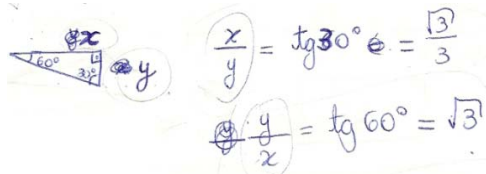 x
60° 30° y
x/y = tg30° = √3/3
y/x = tg 60° = √3